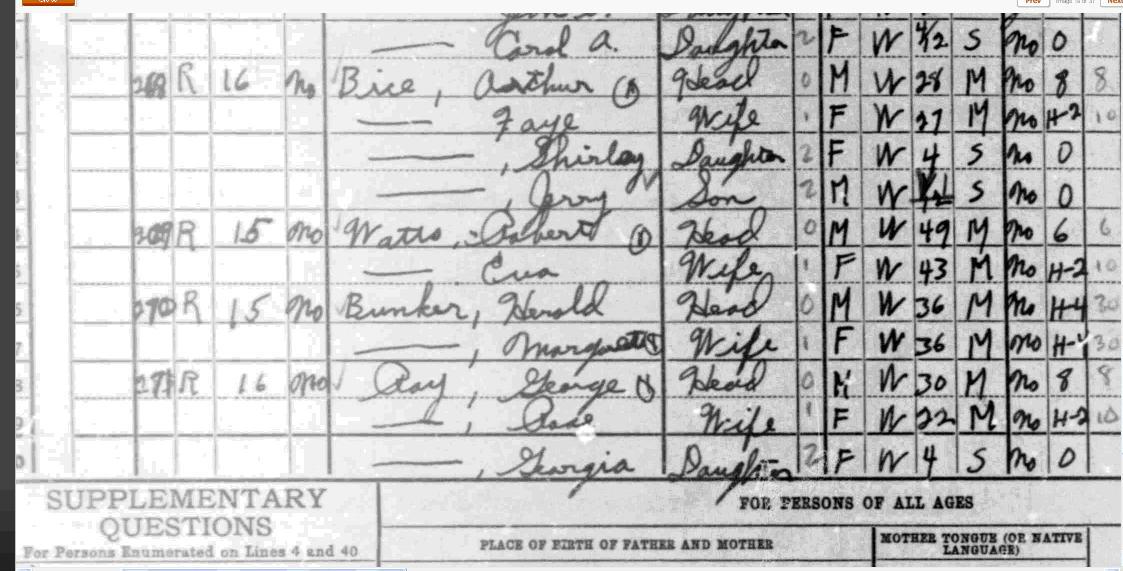 Carol A. Daughter 2 F W 4/12 S No 0
268 R 16 No Bice, Arthur Head 0 M W 28 M No 8 8
Faye Wife 1 F W 27 M No H-2 10
, Shirley Daughter 2 F W 4 S No 0
, Jerry Son 2 M W S No 0
269 R 15 No Watts, Robert Head 0 M W 49 M No 6 6
Eva Wife 1 F W 43 M No H-2 10
270 R 15 No Bunker, Herold Head 0 M W 36 M No H-4 30
, Margarett Wife 1 F W 36 M No H-4 30
271 R 16 No Ray, George Head 0 M W 30 M No 8 8
, Rose Wife 1 F W 22 M No H-2 10
, Georgia Daughter 2 F W 4 S No 0
SUPPLEMENTARY
QUESTIONS
For Persons Enumerated on Lines 4 and 40
FOR PERSONS OF ALL AGES
PLACE OF BIRTH OF FATHER AND MOTHER
MOTHER TONGUE (OR NATIVE
LANGUAGE)